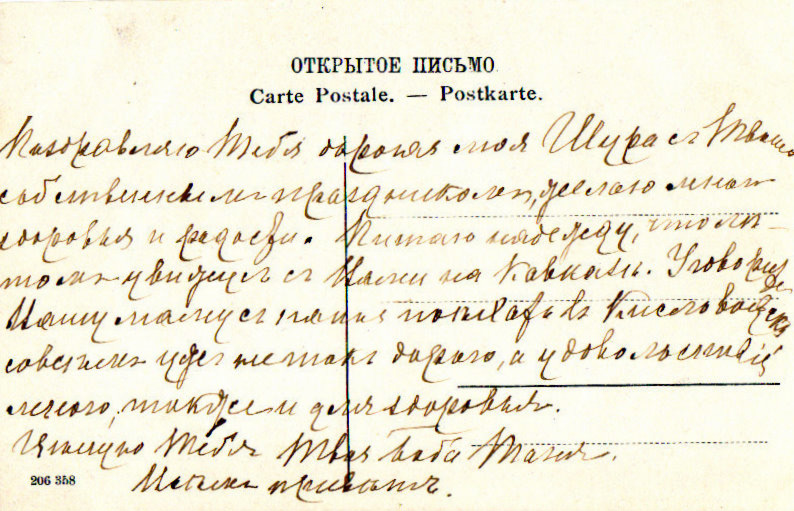 ОТКРЫТОЕ ПИСЬМО
Carte Postale. — Postkarte.
Поздравляю Тебя дорогая моя Шура съ Твоимъ
собственнымъ праздникомъ, желаю много
здоровья и радости. Питаю надежду, что лѣ-
томъ увидимся съ Вами на Кавказѣ. Уговори
Вашу маму съ папой поѣхать въ Кисловодскъ
совсѣмъ не такъ дорого, а удовольствій
много, также и для здоровья.
Цѣлую Тебя Твоя баба Таня.
Всѣмъ привѣтъ.
206 358